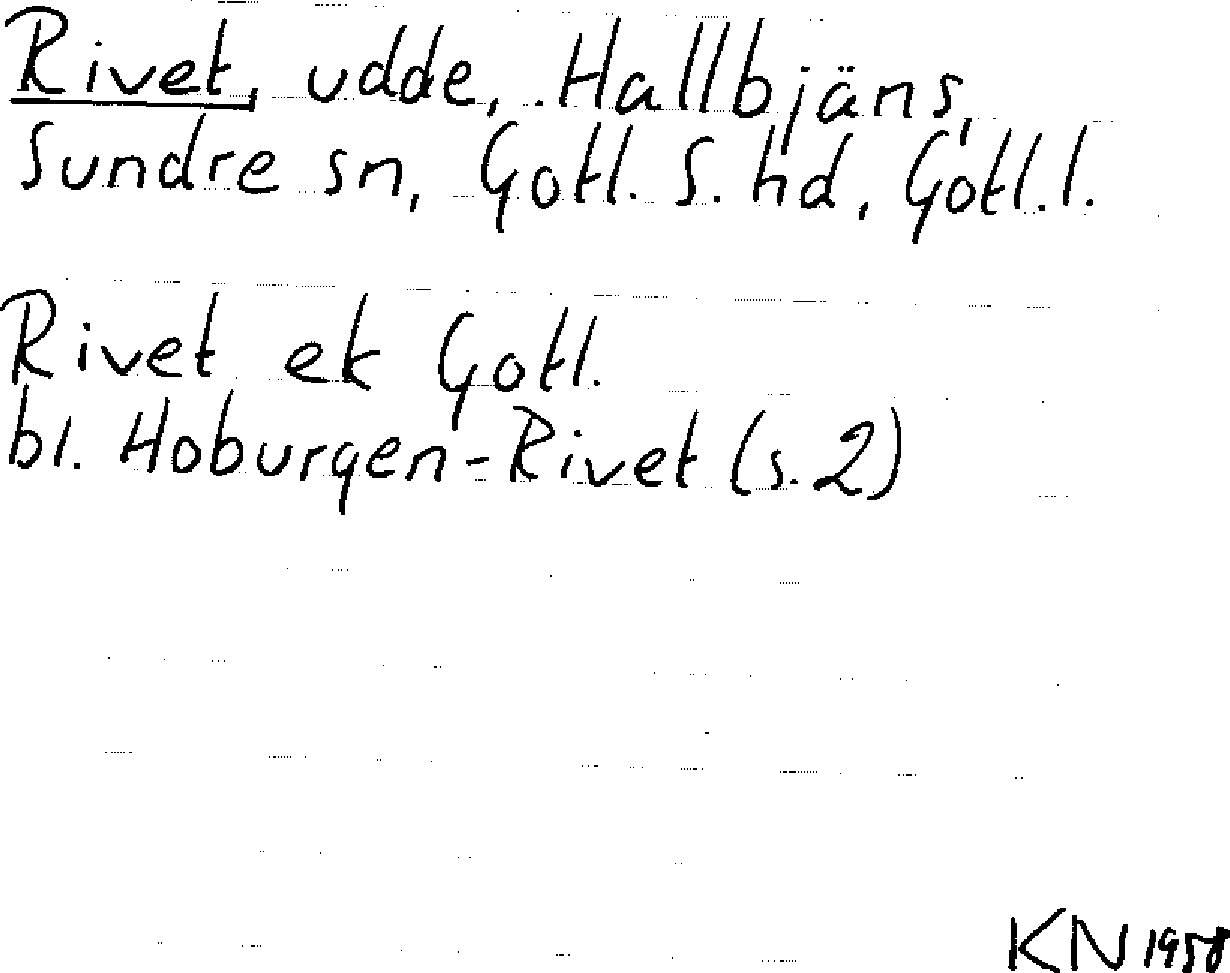 Rivet, udde, Hallbjäns,
Sundre sn, Gotl. S. hd, Gotl. l.
Rivet ek Gotl.
bl. Hoburgen-Rivet (s. 2)
KN 1958